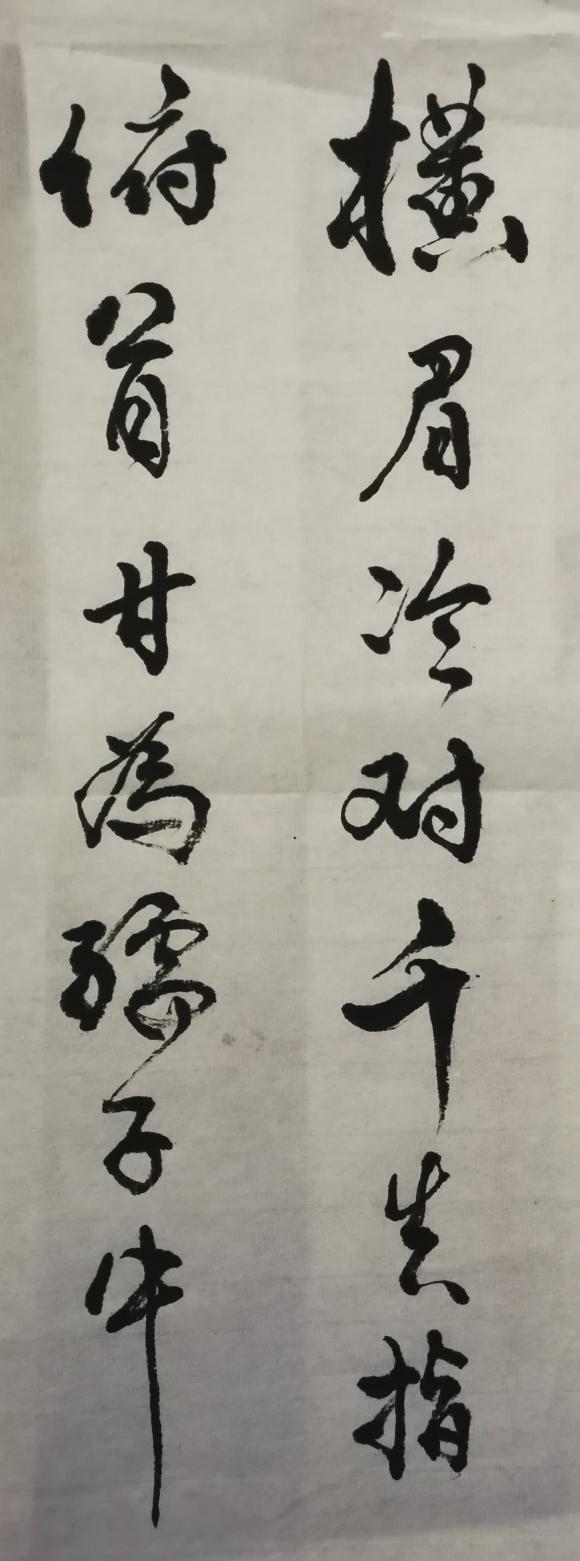 横眉冷对千失指
俯首甘为孺子牛